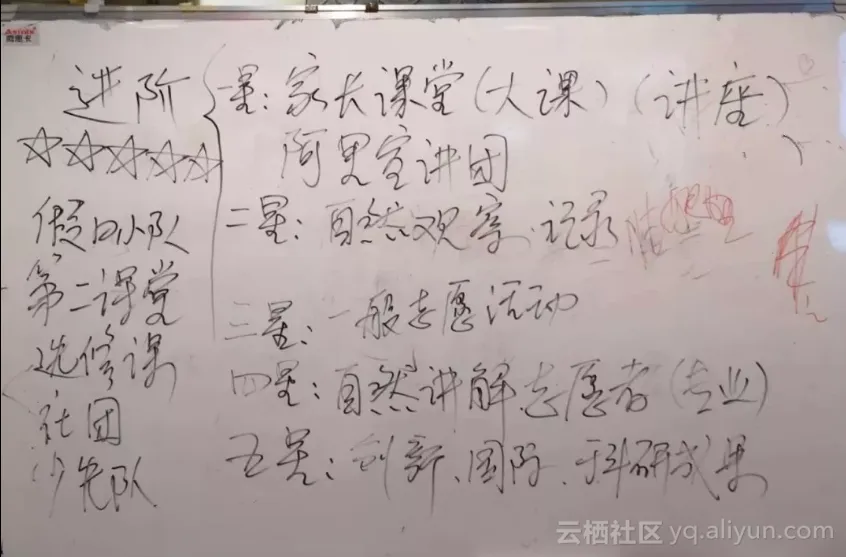 进阶
☆☆☆☆☆
假日小队
第二课堂
选修课
社团
少先队
一星：家长课堂（大课）（讲座）
阿里宣讲团
二星：自然观察、记录
三星：一般志愿活动
四星：自然讲解志愿者（专业）
五星：创新、国际、科研成果
云栖社区 yq.aliyun.com